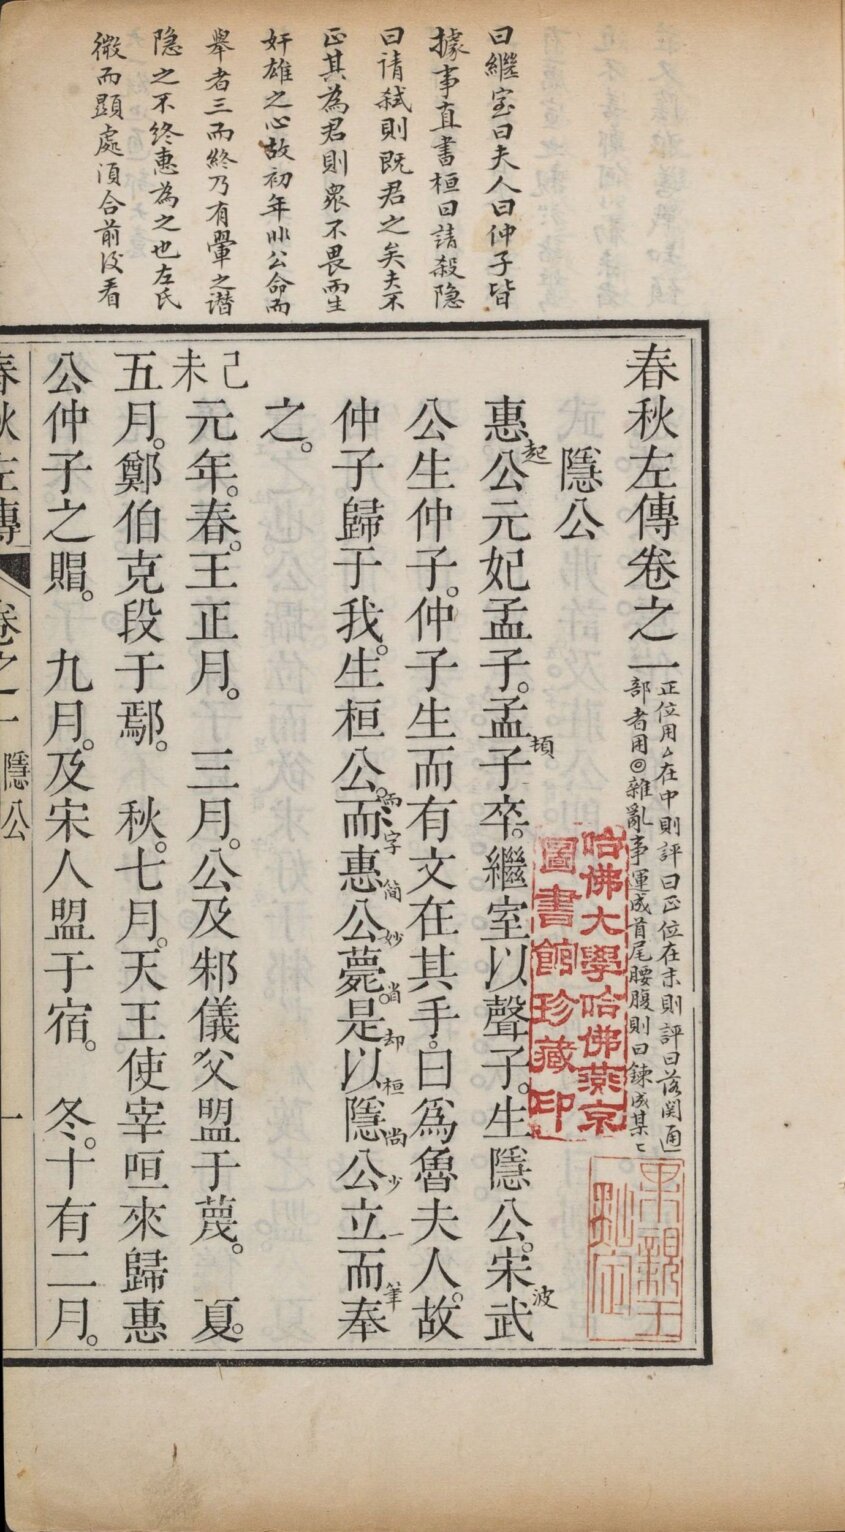 曰繼室曰夫人曰仲子皆
據事直書桓曰請殺隐
曰请弑則既君之矣夫不
正其為君則衆不畏而生
奸雄之心故初年非公命而
舉者三而終乃有翬之谮
隐之不终惠為之也左氏
微而顕處須合前後看
春秋左傳卷之一
正位用△在中則評曰正位在末則評曰落関通
部者用◎雜亂事運成首尾腰腹則曰鍊成某〻
隱公
惠公元妃孟子。孟子卒。繼室以聲子。生隱公。宋武
起
頓
波
公生仲子。仲子生而有文在其手。曰爲魯夫人。故
仲子歸于我。生桓公。而惠公薨。是以隱公立而奉
而字简妙尚却桓尚少一筆
之。
己未
元年。春。王正月。 三月。公及邾儀父盟于蔑。 夏。
五月。鄭伯克段于鄢。 秋。七月。天王使宰咺來歸惠
公仲子之賵。 九月。及宋人盟于宿。 冬。十有二月。
春秋左傳 卷之一 隱公 一
哈佛大學哈佛燕京
圖書館珍藏印